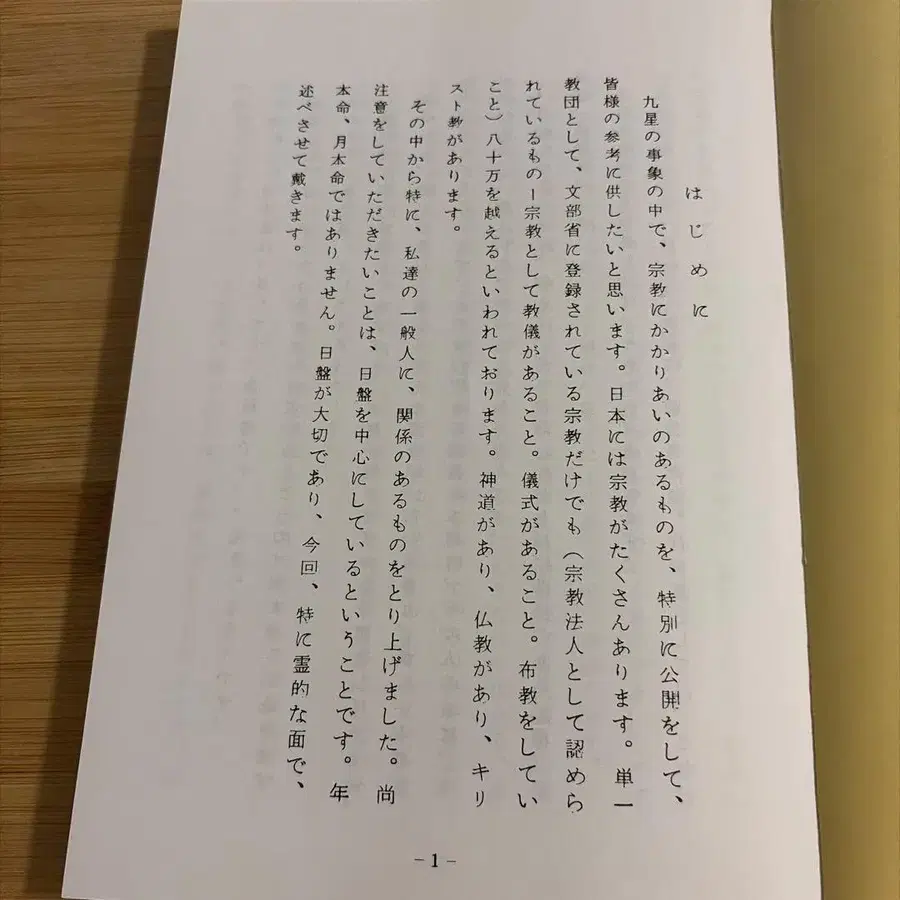 はじめに
九星の事象の中で、宗教にかかりあいのあるものを、特別に公開をして、
皆様の参考に供したいと思います。日本には宗教がたくさんあります。単一
教団として、文部省に登録されている宗教だけでも（宗教法人として認めら
れているものー宗教として教儀があること。儀式があること。布教をしてい
こと）八十万を越えるといわれております。神道があり、仏教があり、キリ
スト教があります。
その中から特に、私達の一般人に、関係のあるものをとり上げました。尚
注意をしていただきたいことは、日盤を中心にしているということです。年
本命、月本命ではありません。日盤が大切であり、今回、特に霊的な面で、
述べさせて戴きます。
- 1 -